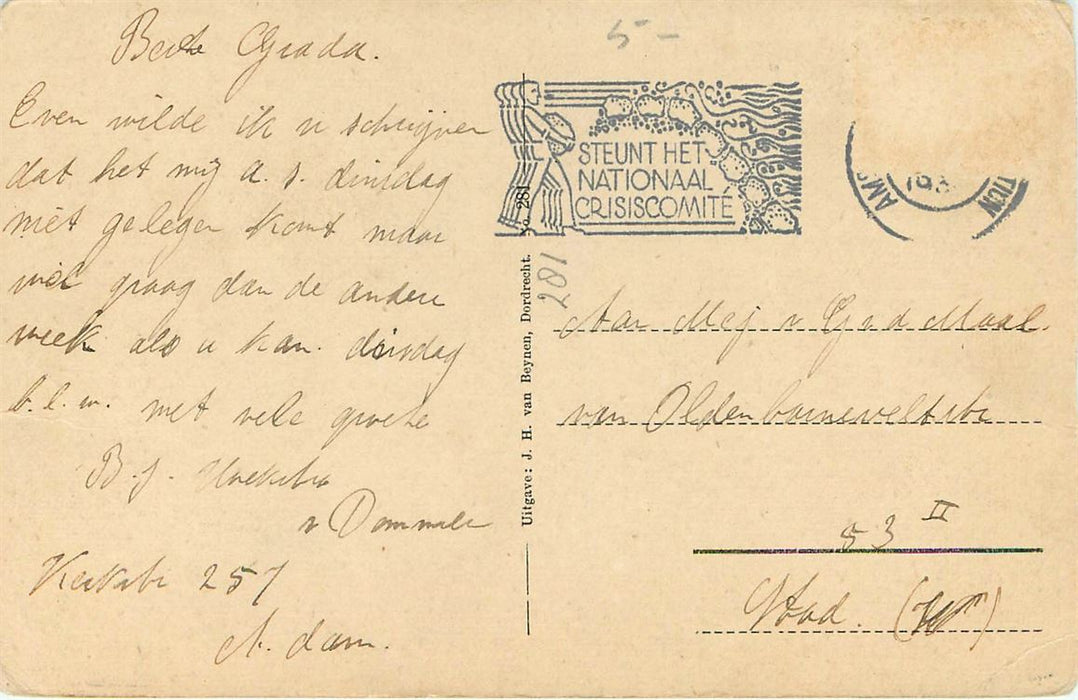 Beste Grada.
Even wilde ik u schrijven
dat het mij a.s. dinsdag
niet gelegen komt maar
wel graag dan de andere
week als u kan. dinsdag
b.l.w. met vele groete
B. J. Hoekstra
v Dommele
Kerkstr 257
A. dam.
5-
STEUNT HET
NATIONAAL
CRISISCOMITÉ
AMS
193
No. 281
281
Uitgave: J. H. van Beynen, Dordrecht.
Aan Mej v Maal
van Oldenbarneveltstr
53 II
Stad. (W)